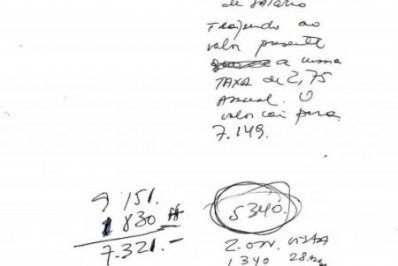 de salário
Trazendo ao
valor presente
a uma
TAXA de 2,75
anual. O
valor cai para
7.149.
9 151.
1 830
7.321.-
5340.
2.000 VISTA
1 340 28